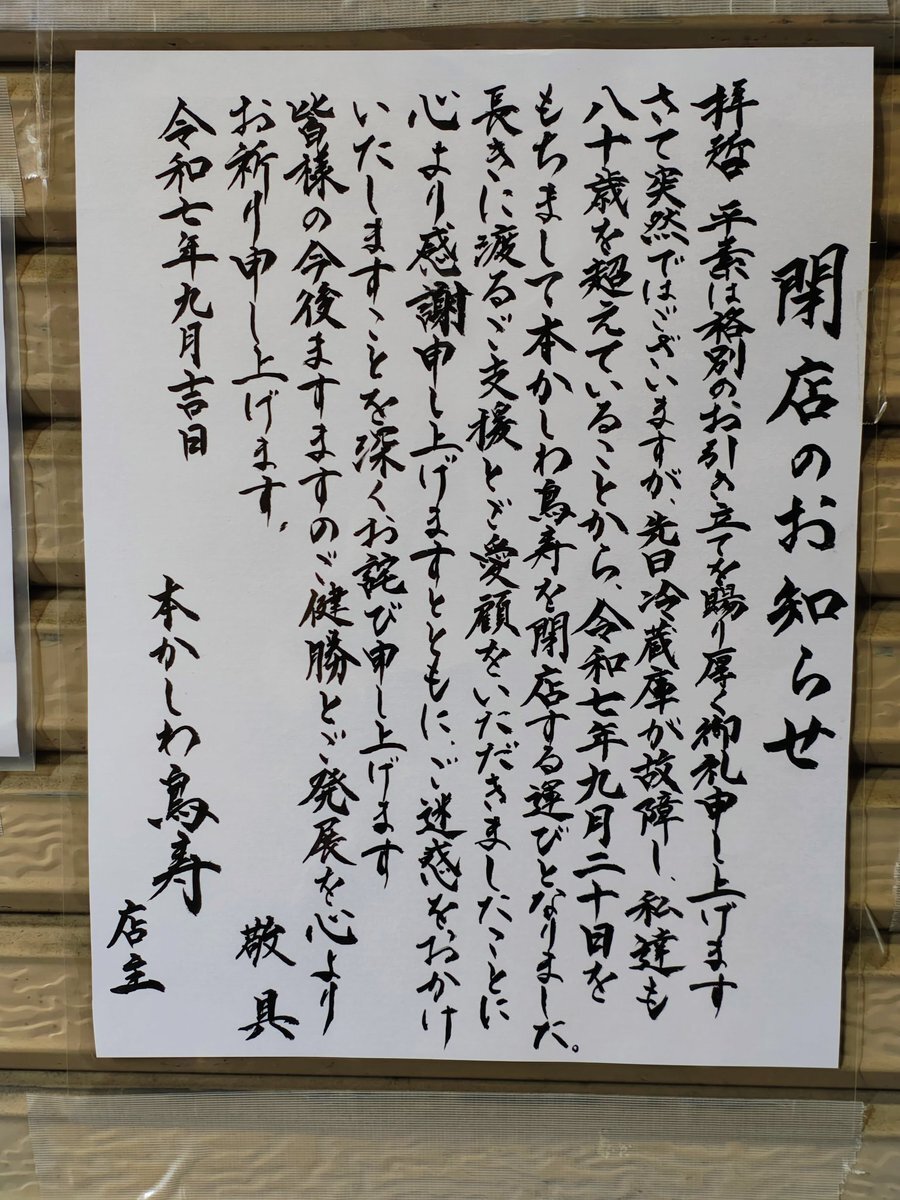 閉店のお知らせ
拝啓 平素は格別のお引き立てを賜り厚く御礼申し上げます
さて突然ではございますが、先日冷蔵庫が故障し、私達も
八十歳を超えていることから、令和七年九月二十日を
もちまして本かしわ鳥寿を閉店する運びとなりました。
長きに渡るご支援とご愛顧をいただきましたことに
心より感謝申し上げますとともに、ご迷惑をおかけ
いたしますことを深くお詫び申し上げます
皆様の今後ますますのご健勝とご発展を心より
お祈り申し上げます。
敬具
令和七年九月吉日
本かしわ鳥寿
店主